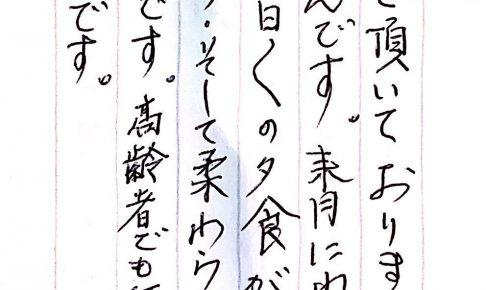 頂いております
んです。来月にわ
日々の夕食が
・そして柔わら
です。高齢者でも
です。